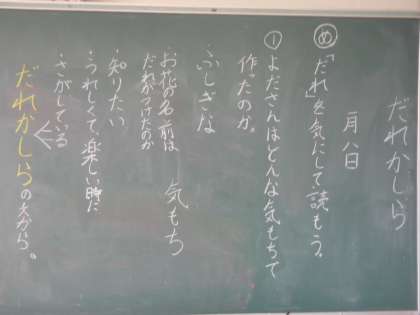 だれかしら
月八日
め 「だれ」を気にして読もう。
① よださんはどんな気もちで
作ったのか。
ふしぎな 気もち
名前は
だれがつけたのか
・知りたい
・うれしくて、楽しい時
・さがしている
だれかしらの文から。